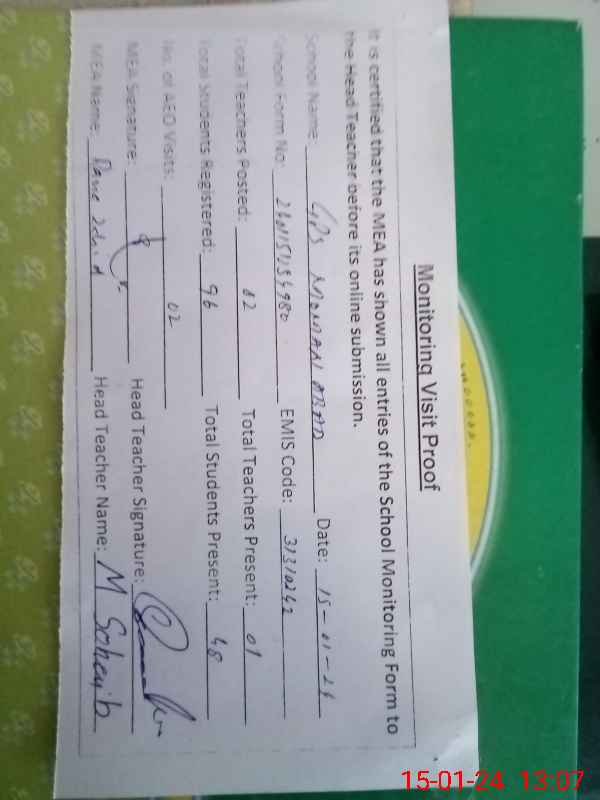 Monitoring Visit Proof
It is certified that the MEA has shown all entries of the School Monitoring Form to
the Head Teacher before its online submission.
School Name: GPS MOMAN ABAD Date: 15-01-24
School Form No: EMIS Code: 31310242
Total Teachers Posted: 02 Total Teachers Present: 01
Total Students Registered: 96 Total Students Present: 48
No. of AEO Visits: 02
MEA Signature: Head Teacher Signature:
MEA Name: Head Teacher Name: M Soheyib
15-01-24 13:07